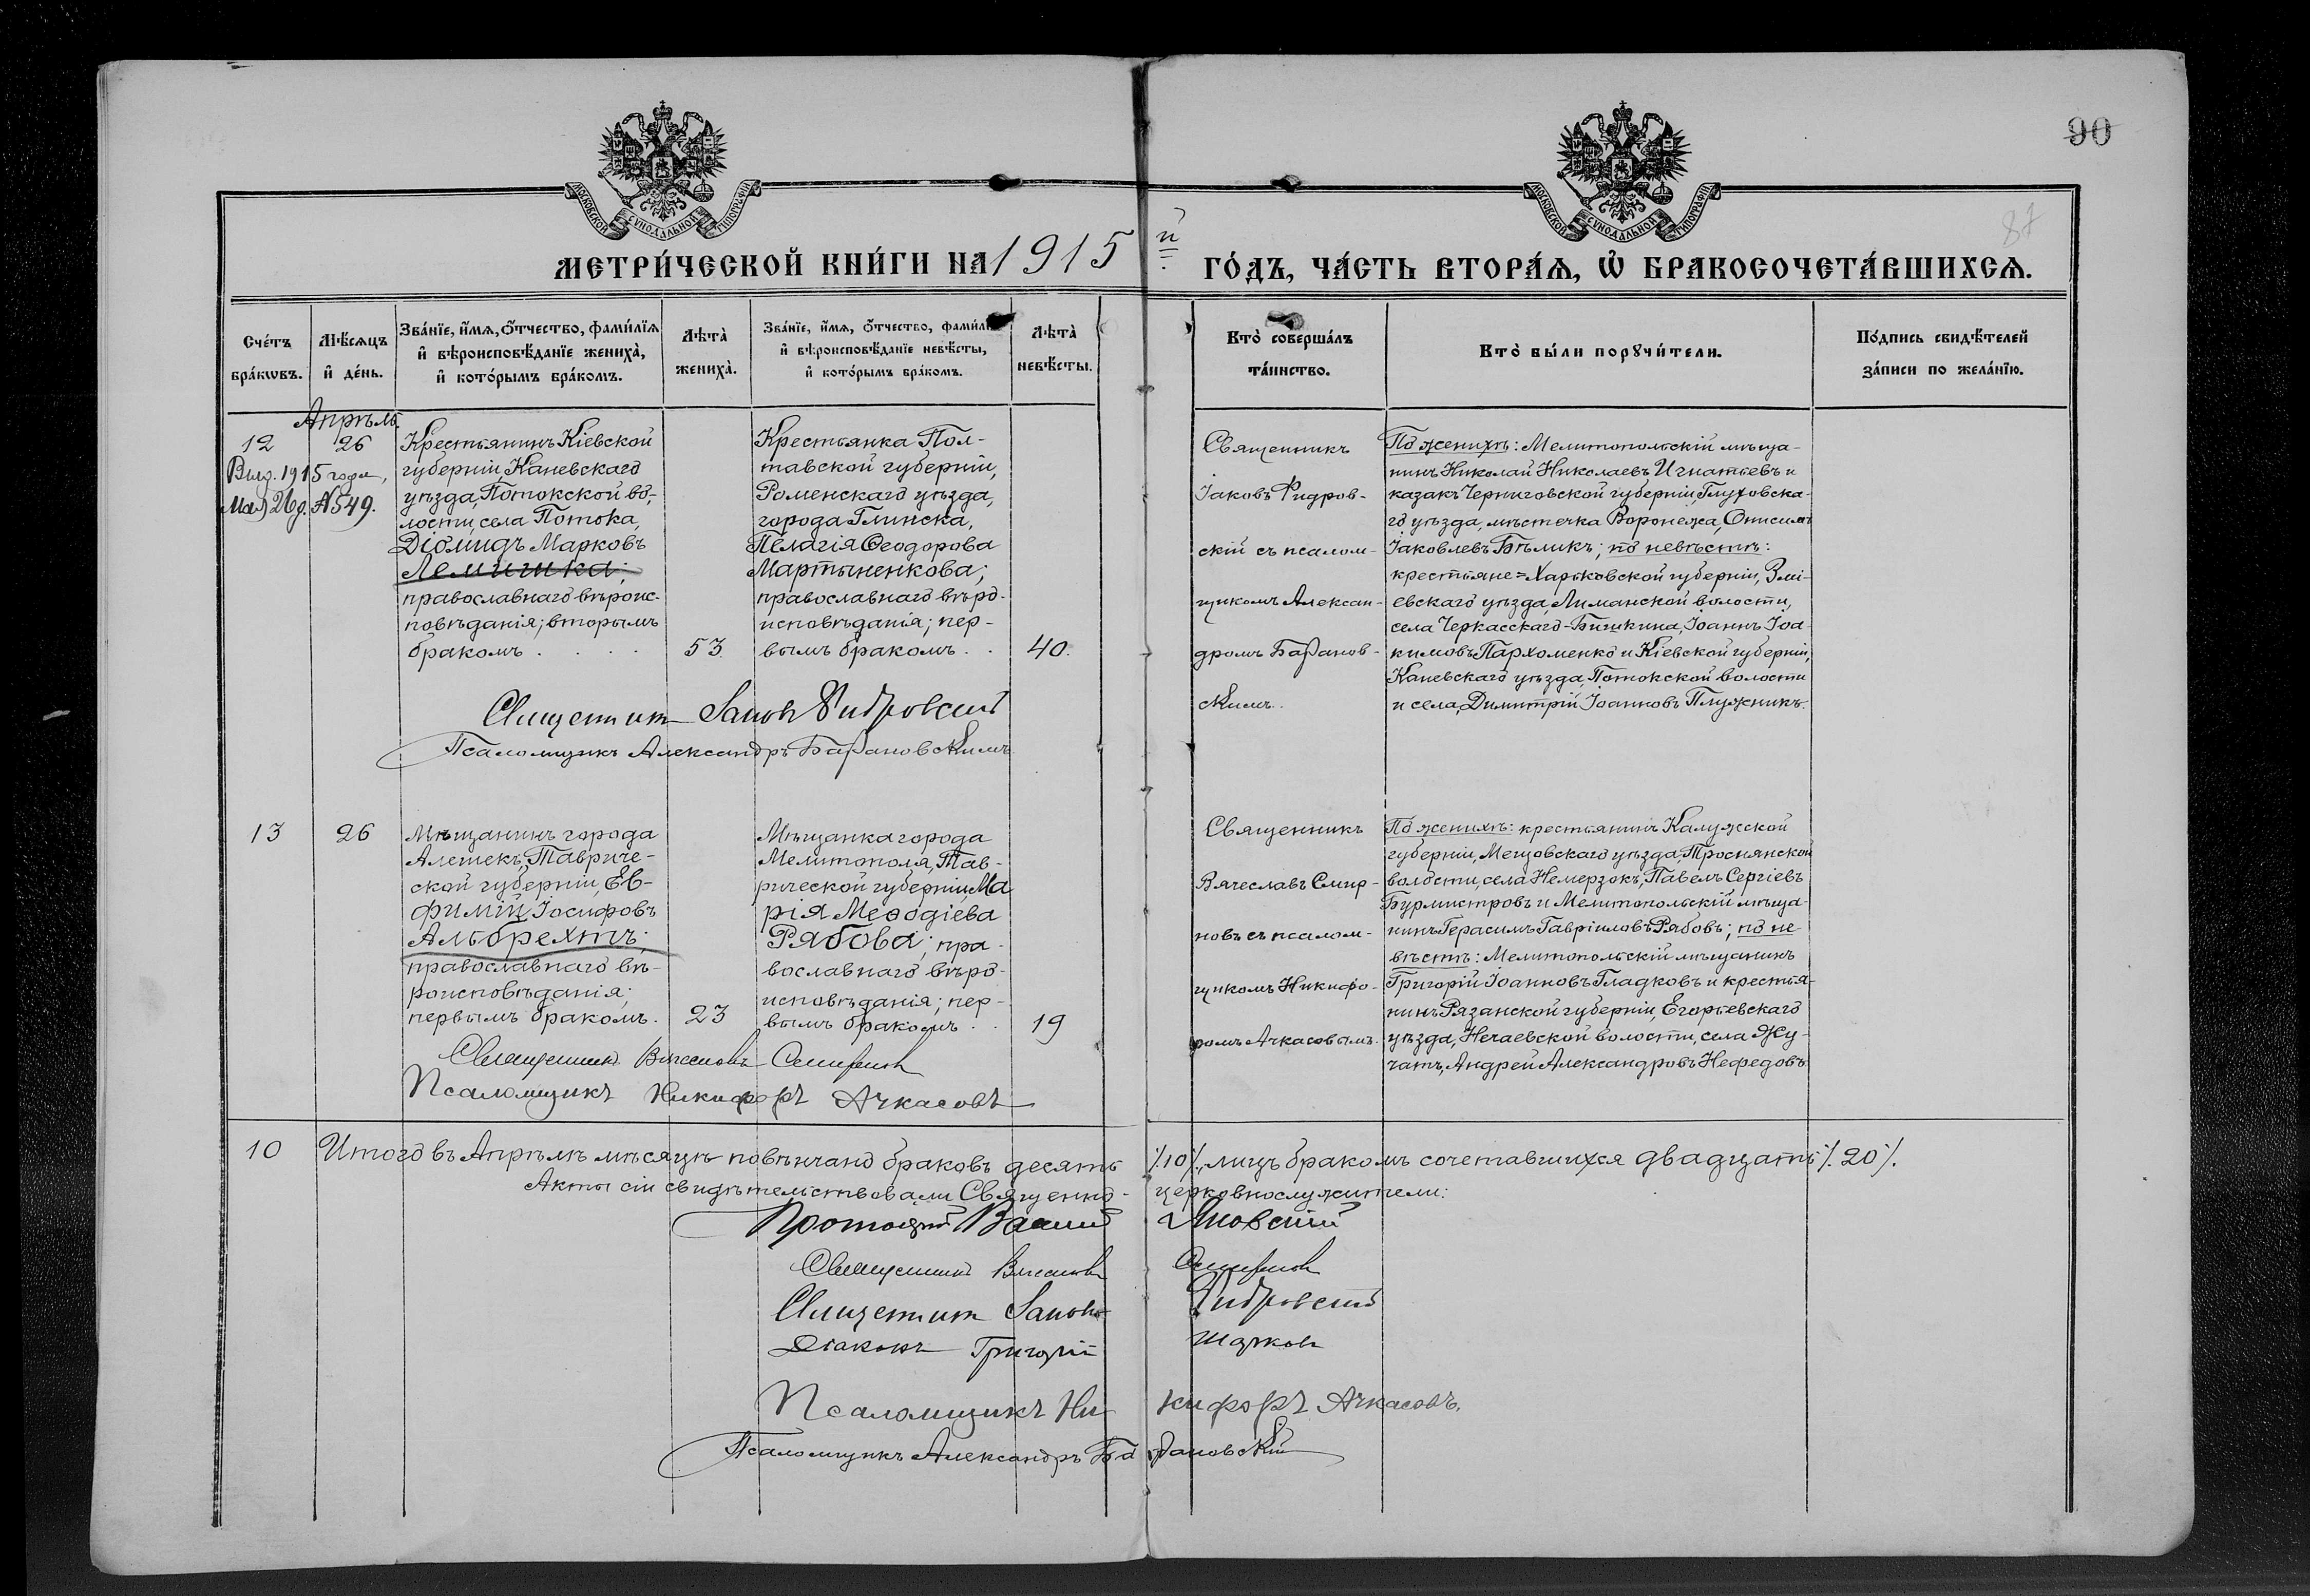 90
87
МОСКОВСКОЙ СѴНОДАЛЬНОЙ ТИПОГРАФІИ
МОСКОВСКОЙ СѴНОДАЛЬНОЙ ТИПОГРАФІИ
МЕТРИ́ЧЕСКОЙ КНИ́ГИ НА 1915 й ГО́ДЪ, ЧА́СТЬ ВТОРА́Ѧ, Ѡ҆ БРАКОСОЧЕТА́ВШИХСѦ.
Сче́тъ
бра́кѡвъ.
Мѣ́сѧцъ
и҆ де́нь.
Зва́нїе, и҆́мѧ, ѻ҆́тчество, фами́лїѧ
и҆ вѣроисповѣ́данїе жениха̀,
и҆ кото́рымъ бра́комъ.
Лѣта̀
жениха̀.
Зва́нїе, и҆́мѧ, ѻ҆́тчество, фами́лї
и҆ вѣроисповѣ́данїе невѣ́сты,
и҆ кото́рымъ бра́комъ.
Лѣта̀
невѣ́сты.
Кто̀ соверша́лъ
та́инство.
Кто̀ бы́ли порꙋчи́тели.
По́дпись свидѣ́телей
за́писи по жела́нїю.
Апрѣль
12
26
Выд. 1915 года,
Мая 26 д. № 549.
Крестьянинъ Кіевской
губерніи, Каневскаго
уѣзда, Потокской во-
лости, села Потока,
Діомидъ Марковъ
Лемишка;
православнаго вѣроис-
повѣданія; вторымъ
бракомъ . . . .
53.
Крестьянка Пол-
тавской губерніи,
Роменскаго уѣзда,
города Глинска,
Пелагія Ѳеодорова
Мартыненкова;
православнаго вѣро-
исповѣданія; пер-
вымъ бракомъ . .
40.
Священникъ
Іаковъ Фидров-
скій съ псалом-
щикомъ Алексан-
дромъ Баранов-
скимъ.
По женихѣ: Мелитопольскій мѣща-
нинъ Николай Николаевъ Игнатьевъ и
казакъ Черниговской губерніи, Глуховска-
го уѣзда, мѣстечка Воронежа, Онисимъ
Іаковлевъ Бѣликъ; по невѣстѣ:
крестьяне = Харьковской губерніи, Змі-
евскаго уѣзда, Лиманской волости,
села Черкасскаго-Бишкина, Іоаннъ Іоа-
кимовъ Пархоменко и Кіевской губерніи,
Каневскаго уѣзда, Потокской волости
и села, Димитрій Іоанновъ Плужникъ.
Священник Іаков Фидровский
Псаломщикъ Александръ Барановскимъ
13
26
Мѣщанинъ города
Алешекъ, Тавриче-
ской губерніи, Ев-
фимій Іосифовъ
Альбрехтъ;
православнаго вѣ-
роисповѣданія;
первымъ бракомъ.
23
Мѣщанка города
Мелитополя, Тав-
рической губерніи, Ма
рія Меѳодіева
Рябова; пра-
вославнаго вѣро-
исповѣданія; пер-
вымъ бракомъ . .
19
Священникъ
Вячеславъ Смир-
новъ съ псалом-
щикомъ Никифо-
ромъ Ачкасовымъ.
По женихѣ: крестьянинъ Калужской
губерніи, Мещовскаго уѣзда, Троснянской
волости, села Немерзокъ, Павелъ Сергіевъ
Бурмистровъ и Мелитопольскій мѣща-
нинъ Герасимъ Гавріиловъ Рябовъ; по не-
вѣстѣ: Мелитопольскій мѣщанинъ
Григорій Іоанновъ Гладковъ и крестья-
нинъ Рязанской губерніи, Егорьевскаго
уѣзда, Нечаевской волости, села Жу-
чатъ, Андрей Александровъ Нефедовъ.
Священник Вячеславъ Смирнов
Псаломщикъ Никифоръ Ачкасовъ
10
Итого въ Апрѣлѣ мѣсяцѣ повѣнчано браковъ десять /.10/., лицъ бракомъ сочетавшихся двадцать /.20/.
Акты сіи свидѣтельствовали Священно-церковнослужители:
Протоіерей Василий Яновский
Священник Вячеслав Смирнов
Священник Іаков Фидровский
Діаконъ Григорій Шарков
Псаломщикъ Никифоръ Ачкасовъ.
Псаломщикъ Александръ Барановскій